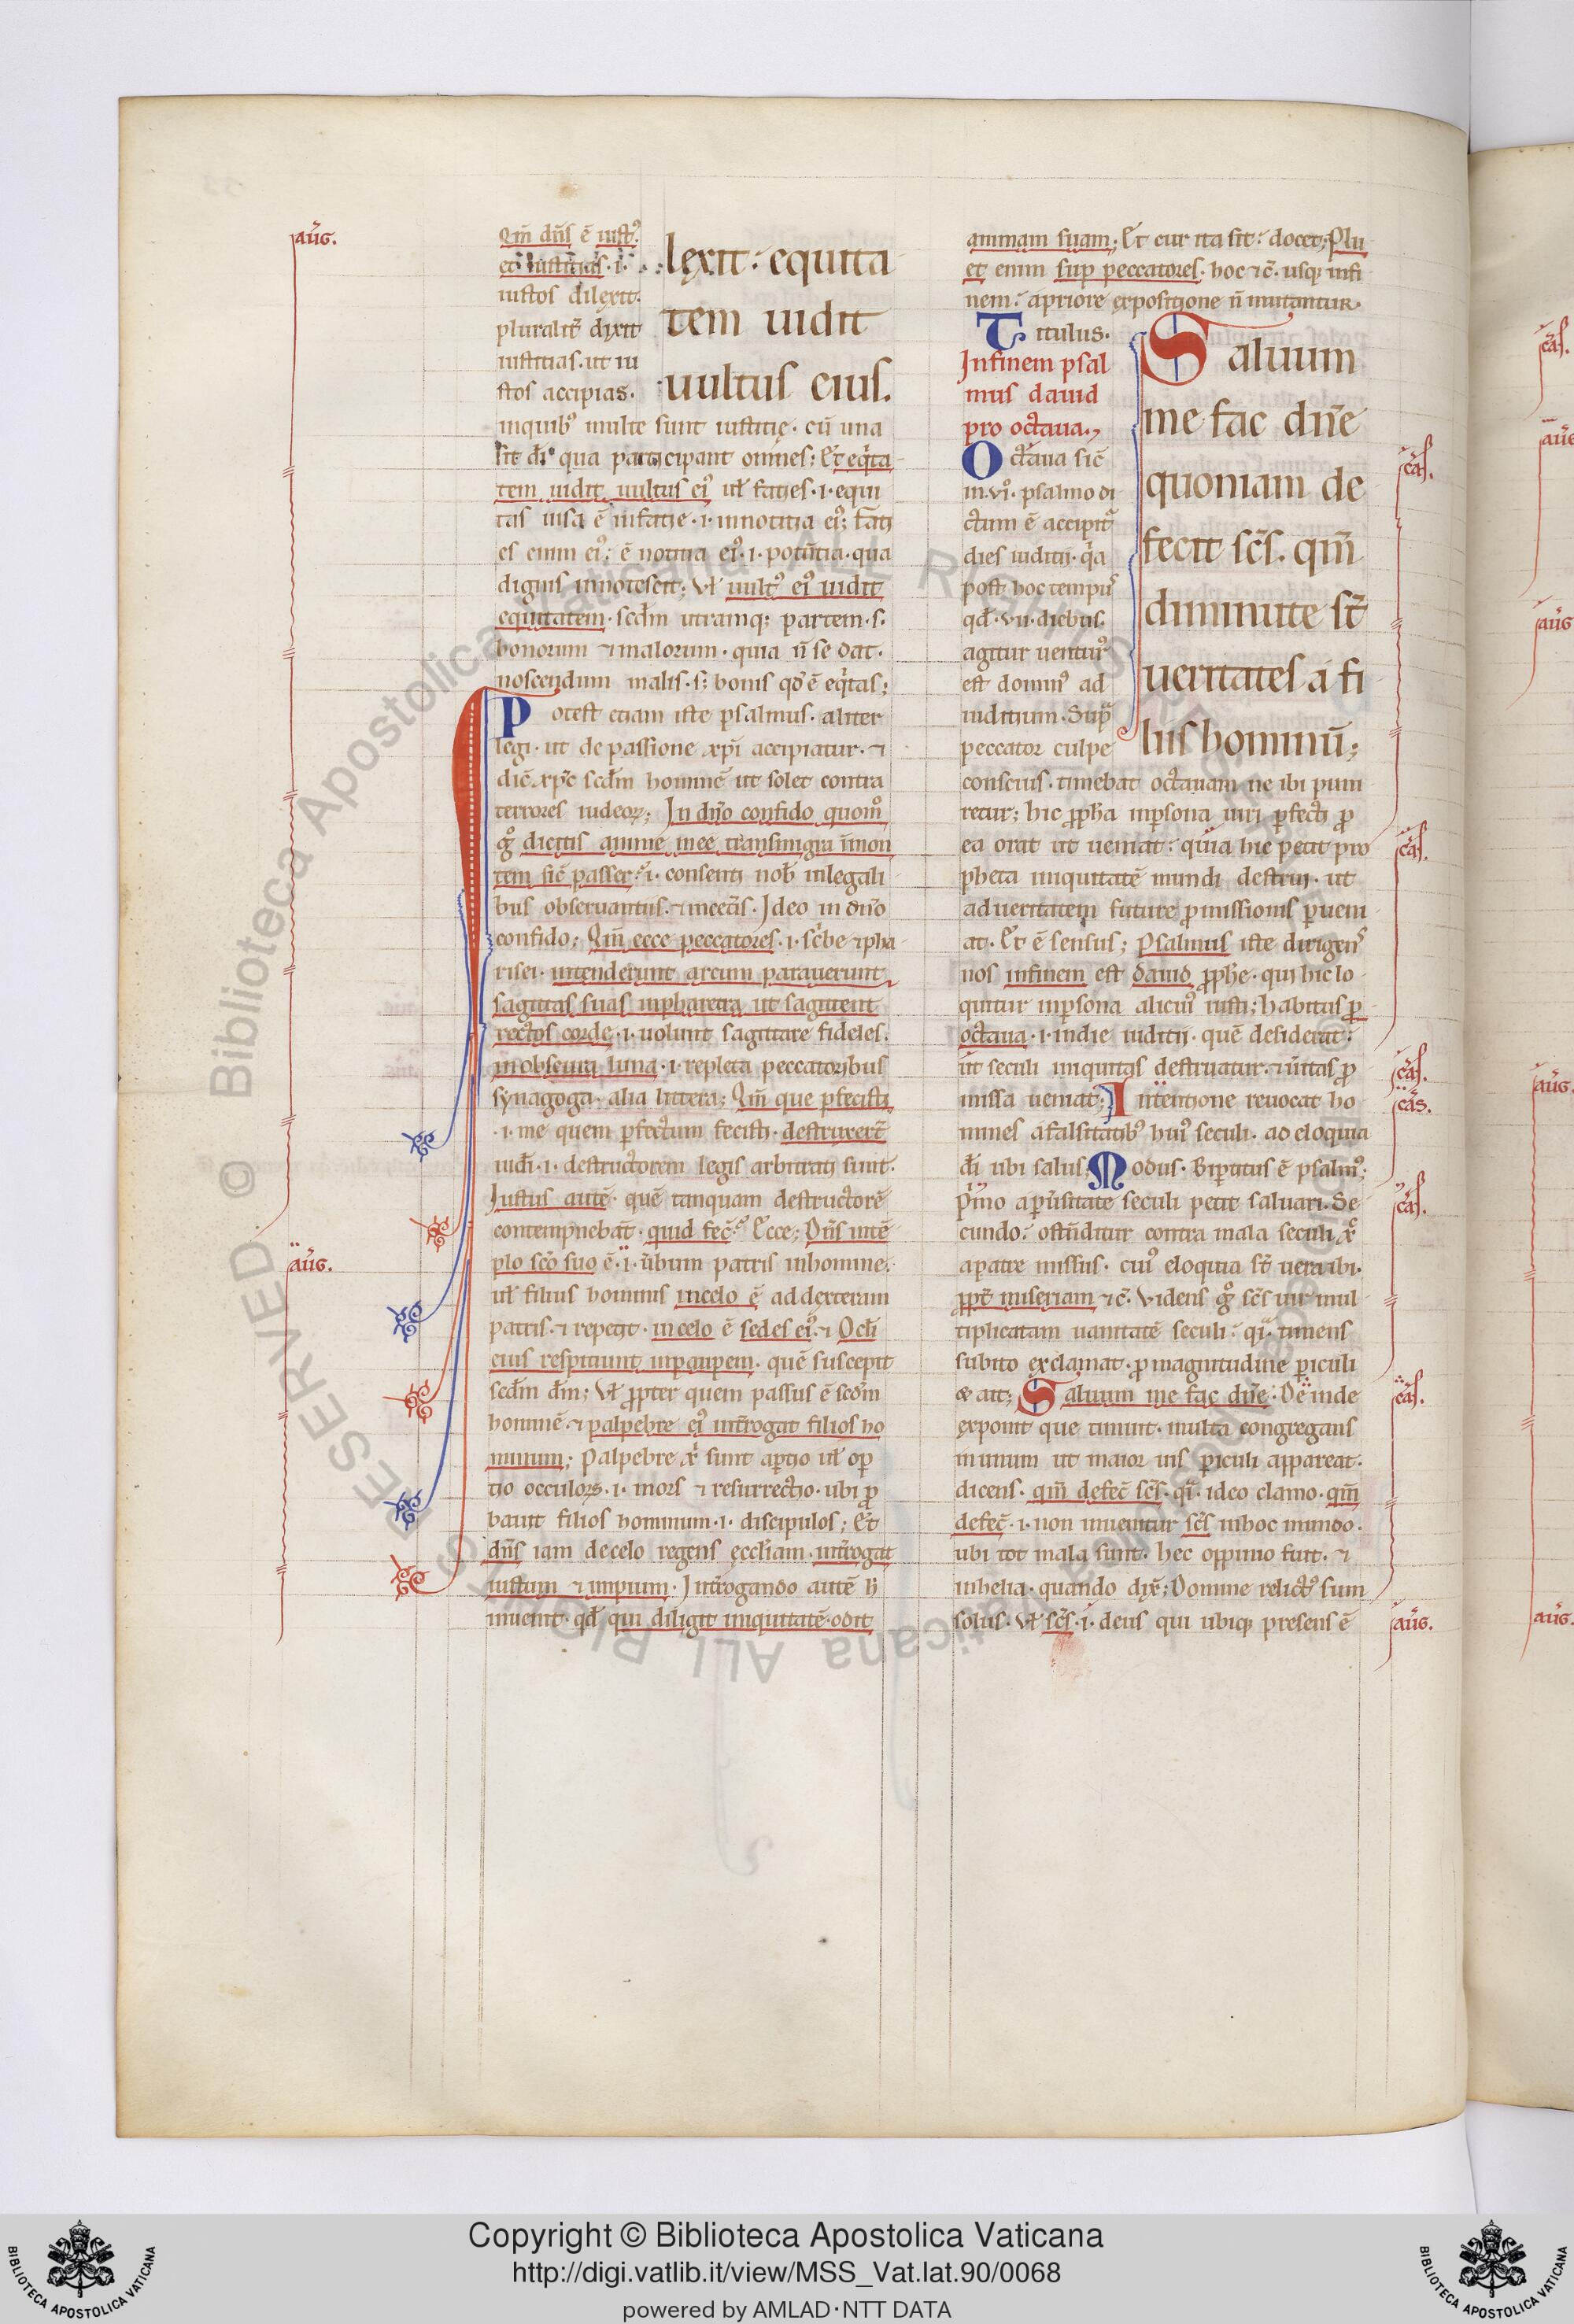 aug̃.
Qm̃ dñs ẽ iustꝰ
et iustitias .i.
iustos dilexit.
pluralit̃ dixit
iustitias. ut iu
stos accipias.
lexit: equita
tem uidit
uultus eius.
in quibꝰ multe sunt iustitie. cũ una
sit d̃i qua participant omnes; Et eq̃ta
tem uidit uultus eiꝰ ul̃ facies .i. equi
tas uisa ẽ in facie .i. in notitia eiꝰ; faci
es enim eiꝰ: ẽ notitia eiꝰ .i. potẽtia. qua
dignis innotescit; Vl̃ uultꝰ eiꝰ uidit
equitatem. scd̃m utramq; partem .s.
bonorum ⁊ malorum. quia ñ se dat
noscendum malis. s; bonis qd̃ ẽ eq̃tas;
Potest etiam iste psalmus. aliter
legi. ut de passione xp̃i accipiatur. ⁊
dic̃ xp̃c scd̃m hominẽ ut solet contra
terrores iudeoꝝ; In dño confido quomꝰ
gͦ dicitis anime mee transmigra ĩ mon
tem sic̃ passer? .i. consenti nob̃ in legali
bus obseruantiis. ⁊ in ec̃tis. Ideo in dño
confido; Qm̃ ecce peccatores .i. sc̃be ⁊ pha
risei. intenderunt arcum parauerunt
sagittas suas in pharetra ut sagittent
rectos corde .i. uolunt sagittare fideles.
in obscura luna .i. repleta peccatoribus
synagoga. alia littera; Qm̃ que pfecisti
.i. me quem pfectum fecisti. destruxert̃
iud̃i .i. destructorem legis arbitrati sunt.
Iustus autẽ. quẽ tanquam destructorẽ
contempnebat̃. quid fec̃? Ecce; Dñs in tẽ
plo sc̃o suo ẽ .i. ũbum patris in homine.
aug̃.
ul̃ filius hominis in celo ẽ ad dexteram
patris. ⁊ repetit. in celo ẽ sedes eiꝰ. ⁊ Oc̃li
eius respiciunt in pauperem. quẽ suscepit
scd̃m d̃m; Vl̃ ꝓpter quem passus ẽ scd̃m
hominẽ. ⁊ palpebre eiꝰ int̃rogat filios ho
minum; Palpebre xͥ sunt aptio ul̃ op
tio occuloꝝ .i. mors ⁊ resurrectio. ubi ꝓ
bauit filios hominum .i. discipulos; Et
dñs iam de celo regens eccl̃iam. int̃rogat
iustum ⁊ impium. Int̃rogando autẽ h̃
inuenit. qd̃ qui diligit iniquitatẽ. odit
animam suam; Et cur ita sit: docet; Plu
et enim sup peccatores. hoc ⁊c̃. usq; in fi
nem: a priore expositione ñ mutantur.
Titulus.
In finem psal
mus dauid
pro octaua.
Octaua sic̃
in .vi. psalmo di
ctum ẽ accipit̃
dies iuditii. q̃a
post hoc tempꝰ
qd̃ .vii. diebus.
agitur uenturꝰ
est dominꝰ ad
iuditium. Supͣ
peccator culpe
Saluum
me fac dñe
quoniam de
fecit sc̃s. qm̃
diminute st̃
ueritates a fi
liis hominũ;
cas̃.
conscius. timebat octauam ne ibi puni
retur; hic ꝓpha in psona uiri pfecti ꝓ
ea orat ut ueniat: quia hic petit pro
pheta iniquitatẽ mundi destrui. ut
cas̃.
ad ueritatem future ꝓmissionis pueni
at. Et ẽ sensus; Psalmus iste dirigenꝰ
nos in finem est dauid ꝓphe. qui hic lo
quitur in psona alicuiꝰ iusti; habitus p
octaua .i. in die iuditii. quẽ desiderat:
ut seculi iniquitas destruatur. ⁊ ũitas ꝓ
cas̃.
missa ueniat; Intentione reuocat ho
cas̃.
mines a falsitatibꝰ huiꝰ seculi. ad eloquia
d̃i ubi salus. Modus. Bipartitus ẽ psalmꝰ;
Pͥmo a puersitate seculi petit saluari. Se
cas̃.
cundo: ostẽditur contra mala seculi xͨ
a patre missus. cuiꝰ eloquia st̃ uera ibi.
ꝓpt̃ miseriam ⁊c̃. Videns gͦ sc̃s uir mul
tiplicatam uanitatẽ seculi: qͣi. timens
subito exclamat. ꝓ magnitudine piculi
⁊ ait; Saluum me fac dñe: Deinde
cas̃.
exponit que timuit. multa congregans
in unum ut maior uis piculi appareat.
dicens. qm̃ defec̃ sc̃s. qͣi. ideo clamo. qm̃
defec̃ .i. non inuenitur sc̃s in hoc mundo.
ubi tot mala sunt. hec oppinio fuit. ⁊
in helia. quando dix̃; Domine relictꝰ sum
solus. Vl̃ sc̃s .i. deus qui ubiq; presens ẽ
aug̃.
cas̃.
aug̃
aug̃
aug̃.
aug̃.
© Biblioteca Apostolica Vaticana ALL RIGHTS RESERVED
BIBLIOTECA APOSTOLICA VATICANA
Copyright © Biblioteca Apostolica Vaticana
http://digi.vatlib.it/view/MSS_Vat.lat.90/0068
powered by AMLAD·NTT DATA
BIBLIOTECA APOSTOLICA VATICANA